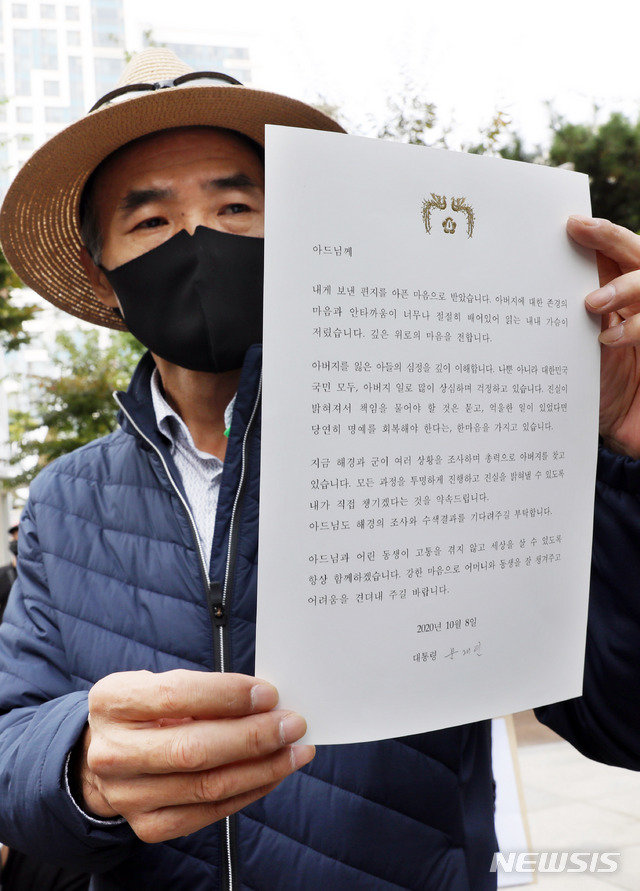 아드님께
내게 보낸 편지를 아픈 마음으로 받았습니다. 아버지에 대한 존경의
마음과 안타까움이 너무나 절절히 배어있어 읽는 내내 가슴이
저렸습니다. 깊은 위로의 마음을 전합니다.
아버지를 잃은 아들의 심정을 깊이 이해합니다. 나뿐 아니라 대한민국
국민 모두, 아버지 일로 많이 상심하며 걱정하고 있습니다. 진실이
밝혀져서 책임을 물어야 할 것은 묻고, 억울한 일이 있었다면
당연히 명예를 회복해야 한다는, 한마음을 가지고 있습니다.
지금 해경과 군이 여러 상황을 조사하며 총력으로 아버지를 찾고
있습니다. 모든 과정을 투명하게 진행하고 진실을 밝혀낼 수 있도록
내가 직접 챙기겠다는 것을 약속드립니다.
아드님도 해경의 조사와 수색결과를 기다려주길 부탁합니다.
아드님과 어린 동생이 고통을 겪지 않고 세상을 살 수 있도록
항상 함께하겠습니다. 강한 마음으로 어머니와 동생을 잘 챙겨주고
어려움을 견뎌내 주길 바랍니다.
2020년 10월 8일
대통령 문재인
NEWSIS